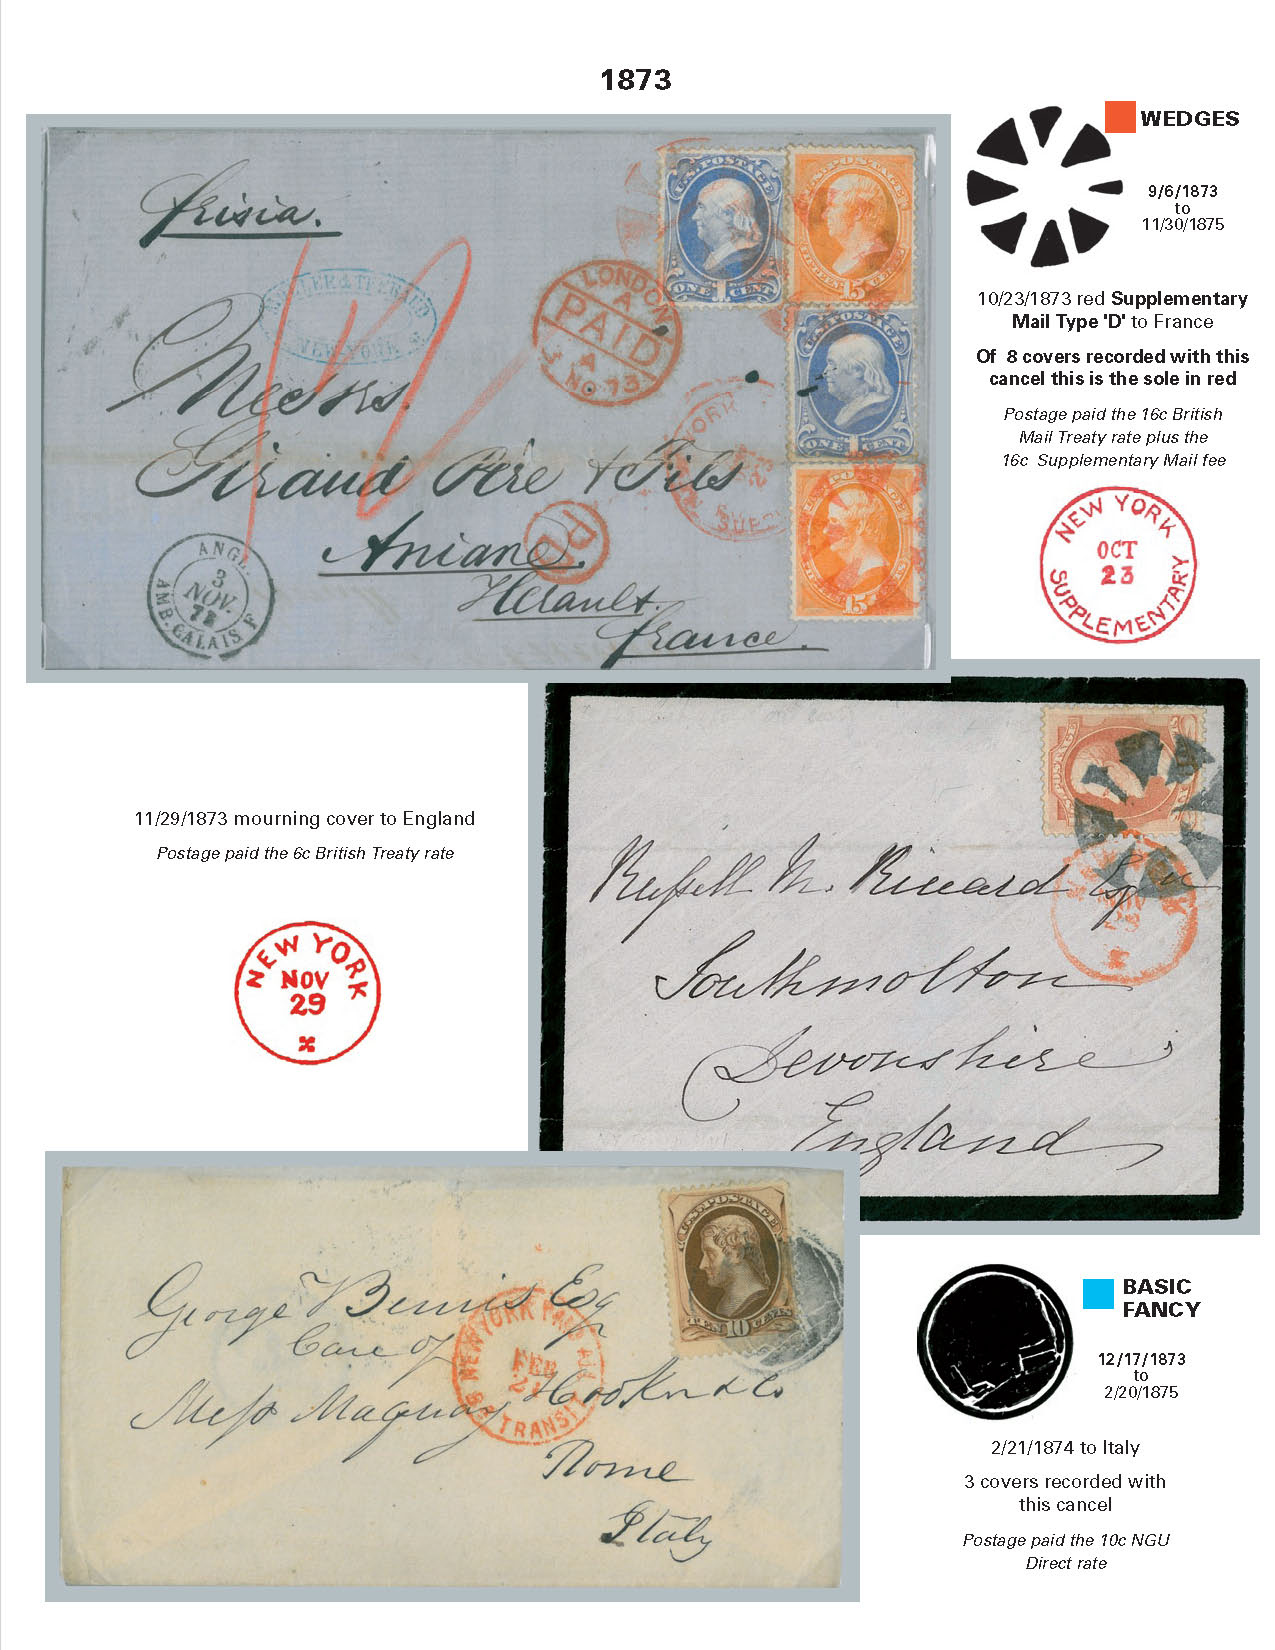 1873
frisia.
NEW YORK
LONDON
A
PAID
NO 73
U.S. POSTAGE
ONE 1 CENT
U.S. POSTAGE
15
U.S. POSTAGE
ONE 1 CENT
15
YORK
SUPP
Messrs.
Giraud Père & Fils
Aniane.
Herault.
france.
ANGL.
3
NOV.
73
AMB. CALAIS F
WEDGES
9/6/1873
to
11/30/1875
10/23/1873 red Supplementary
Mail Type 'D' to France
Of 8 covers recorded with this
cancel this is the sole in red
Postage paid the 16c British
Mail Treaty rate plus the
16c Supplementary Mail fee
NEW YORK
OCT
23
SUPPLEMENTARY
11/29/1873 mourning cover to England
Postage paid the 6c British Treaty rate
NEW YORK
NOV
29
NOV
29
Russell M. Riccard Esq
Southmolton
Devonshire
England
U.S. POSTAGE
TEN 10 CENTS
George Bemis Esq
Care of
Mess Maquay Hooker & Co
Rome
Italy
NEW YORK PAID ALL
FEB
21
TRANSIT
BASIC
FANCY
12/17/1873
to
2/20/1875
2/21/1874 to Italy
3 covers recorded with
this cancel
Postage paid the 10c NGU
Direct rate